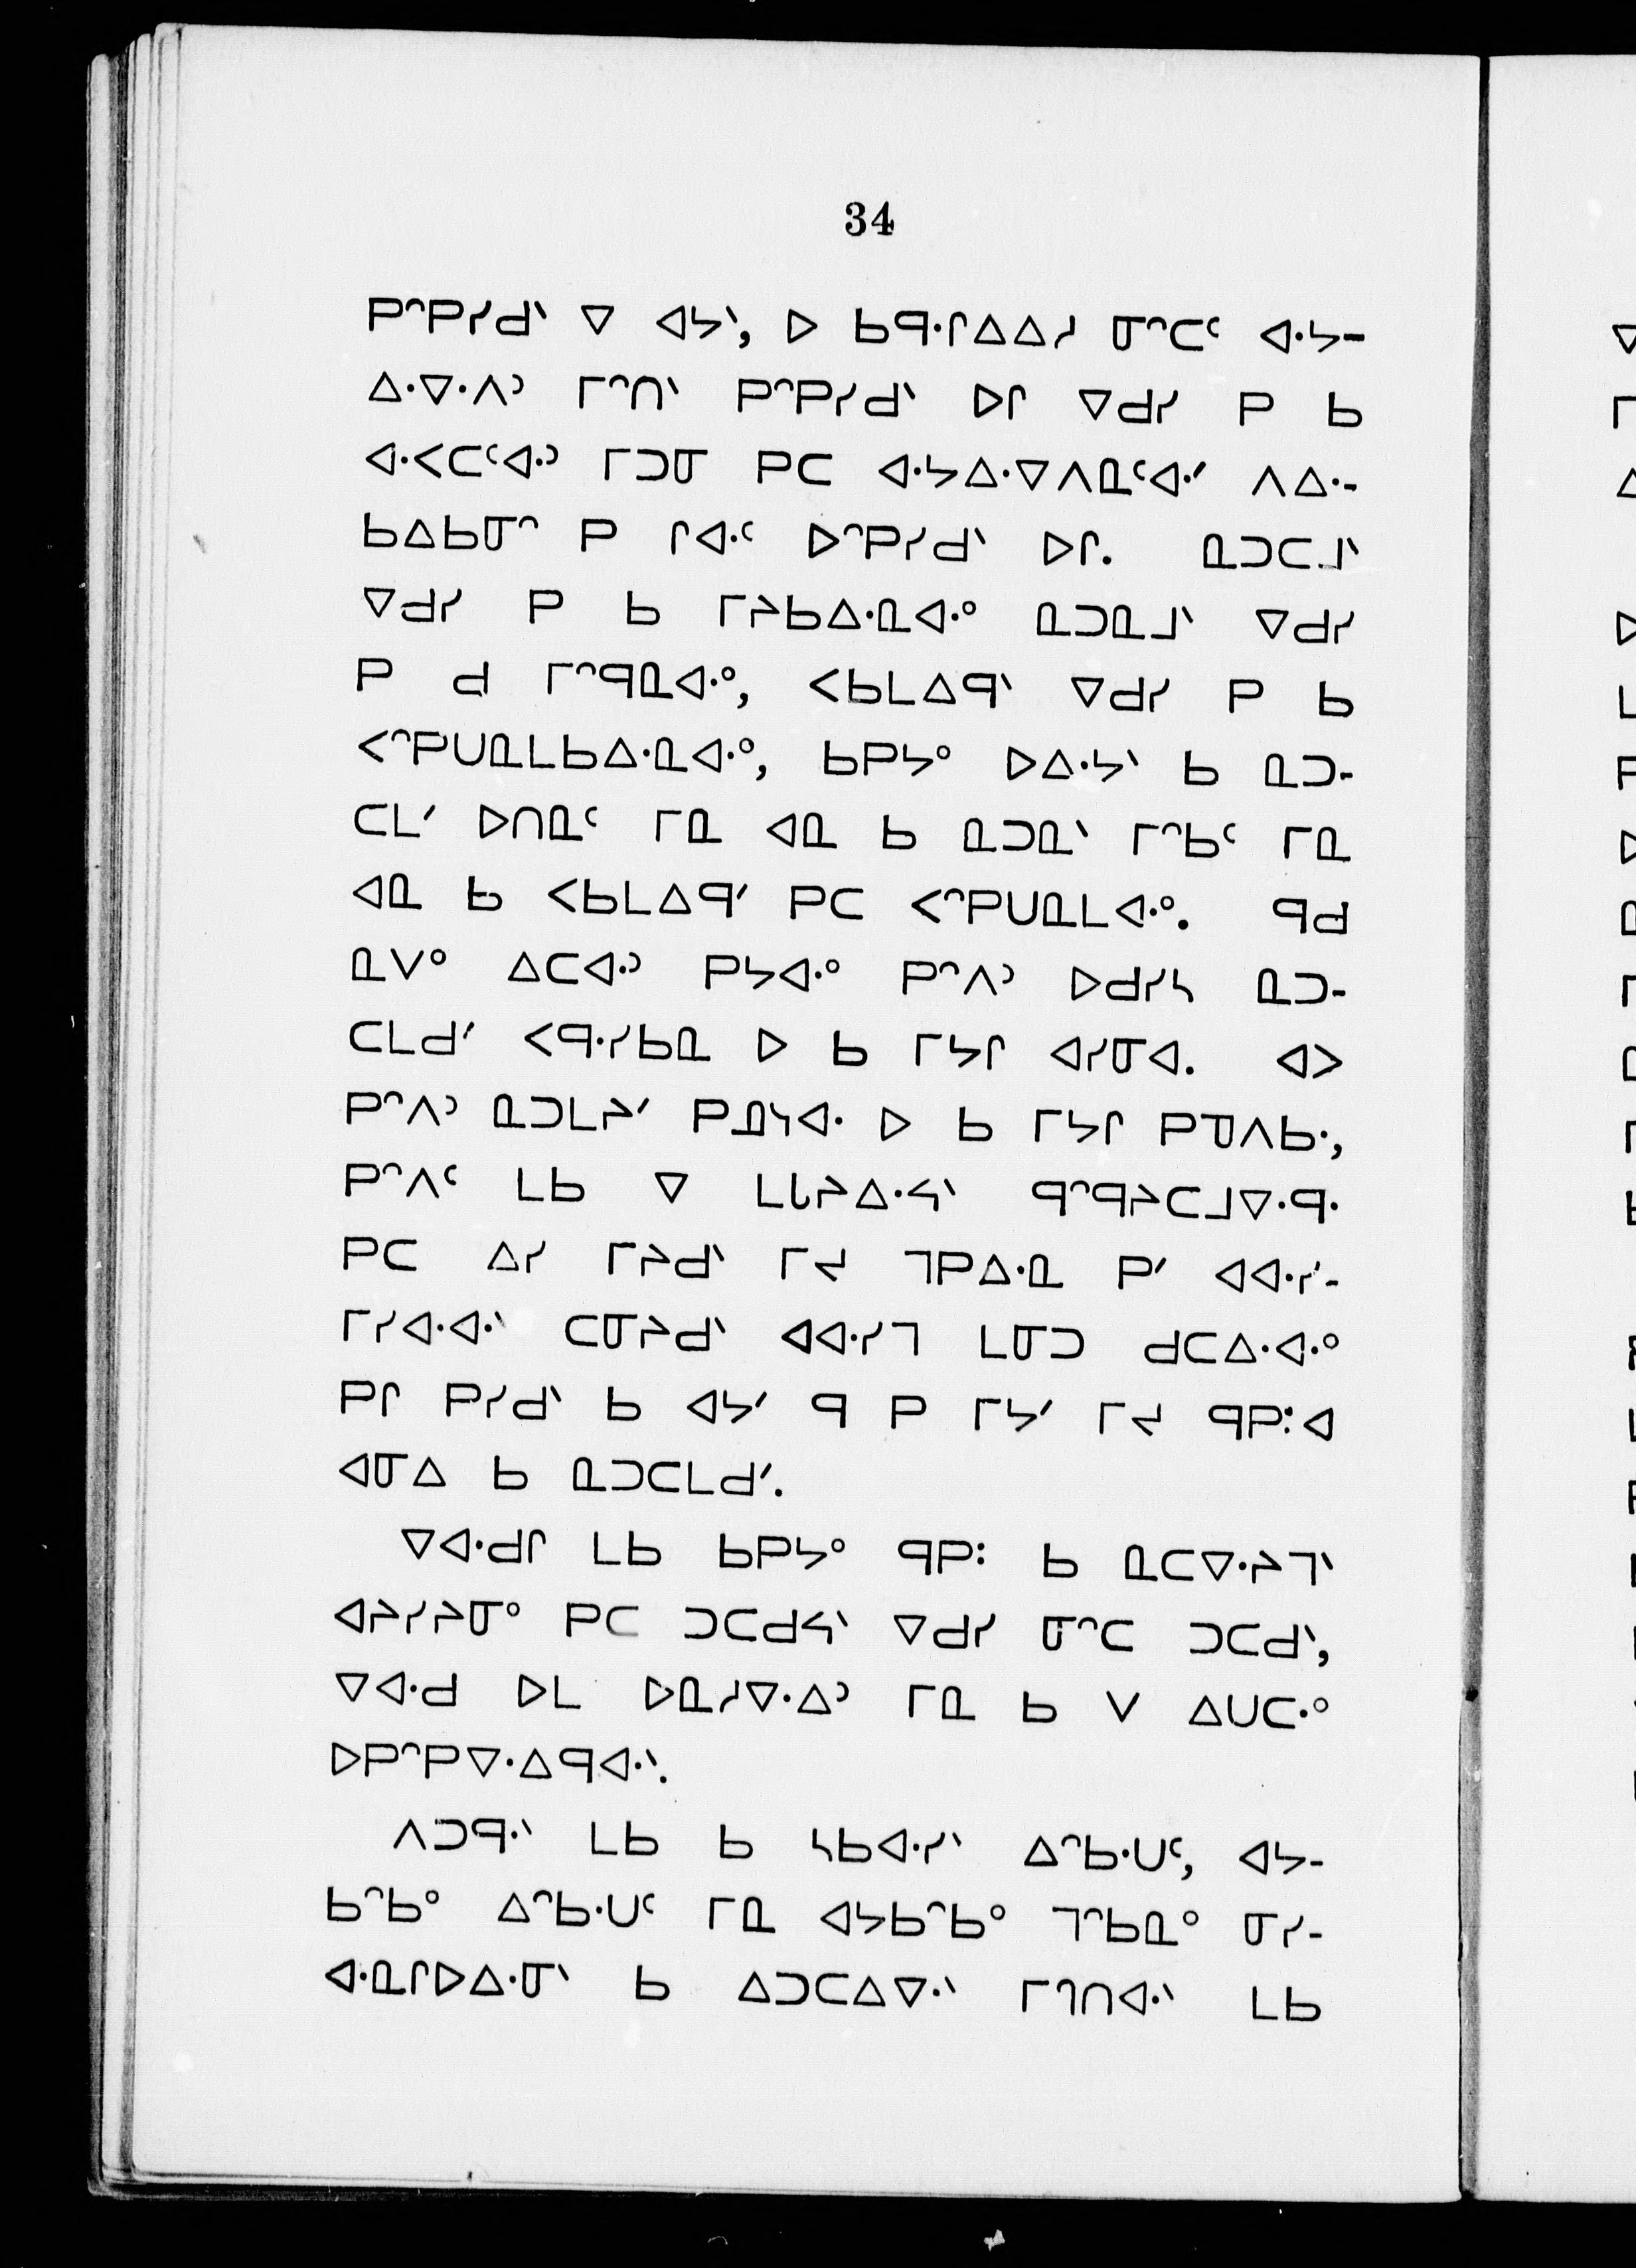 34
ᑭᐢᑭᓯᑯᐠ ᐁ ᐊᔭᐠ, ᐅ ᑲᑫᐧᒋᐃᐃᓱ ᓂᐢᑕᑦ ᐊᐧᔭ-
ᐃᐧᐁᐧᐱᐣ ᒥᐢᑎᐠ ᑭᐢᑭᓯᑯᐠ ᐅᒋ ᐁᑯᓯ ᑭ ᑲ
ᐊᐧᐸᑕᑦᐊᐧᐣ ᒥᑐᓂ ᑭᑕ ᐊᐧᔭᐃᐧᐁᐱᓇᑦᐊᐧᐟ ᐱᐃᐧ-
ᑲᐃᑲᓂᐢ ᑭ ᒋᐊᐧᑦ ᐅᐢᑭᓯᑯᐠ ᐅᒋ. ᓇᑐᑕᒧᐠ
ᐁᑯᓯ ᑭ ᑲ ᒥᔨᑲᐃᐧᓇᐊᐧᐤ ᓇᑐᓇᒧᐠ ᐁᑯᓯ
ᑭ ᑯ ᒥᐢᑫᓇᐊᐧᐤ, ᐸᑲᒪᐃᑫᐠ ᐁᑯᓯ ᑭ ᑲ
ᐸᐢᑭᑌᓇᒪᑲᐃᐧᓇᐊᐧᐤ, ᑲᑭᔭᐤ ᐅᐃᐧᔭᐠ ᑲ ᓇᑐ-
ᑕᒪᐟ ᐅᑎᓇᑦ ᒥᓇ ᐊᓇ ᑲ ᓇᑐᓇᐠ ᒥᐢᑲᑦ ᒥᓇ
ᐊᓇ ᑲ ᐸᑲᒪᐃᑫᐟ ᑭᑕ ᐸᐢᑭᑌᓇᒪᐊᐧᐤ. ᑫᑯ
ᓇᐯᐤ ᐃᑕᐊᐧᐣ ᑭᔭᐊᐧᐤ ᑭᐢᐱᐣ ᐅᑯᓯᓴ ᓇᑐ-
ᑕᒪᑯᐟ ᐸᑫᐧᓯᑲᓇ ᐅ ᑲ ᒥᔭᒋ ᐊᓯᓂᐊ. ᐊᐳ
ᑭᐢᐱᐣ ᓇᑐᒪᔨᐟ ᑭᓄᓴᐊᐧ ᐅ ᑲ ᒥᔭᒋ ᑭᓀᐱᑲᐧ,
ᑭᐢᐱᑦ ᒪᑲ ᐁ ᒪᒐᔨᐃᐧᔦᐠ ᑫᐢᑫᔨᑕᒧᐁᐧᑫᐧ
ᑭᑕ ᐃᓯ ᒥᔨᑯᐠ ᒥᔪ ᒣᑭᐃᐧᓇ ᑭᐟ ᐊᐊᐧᓯᐟ-
ᒥᓯᐊᐧᐊᐧᐠ ᑕᓂᔨᑯᐠ ᐊᐊᐧᓯᒣ ᒪᓂᑐ ᑯᑕᐃᐧᐊᐧᐤ
ᑭᒋ ᑭᓯᑯᐠ ᑲ ᐊᔭᐟ ᑫ ᑭ ᒥᔭᐟ ᒥᔪ ᑫᑭᕽᐊ
ᐊᓂᐃ ᑲ ᓇᑐᑕᒪᑯᐟ.
ᐁᐊᐧᑯᒋ ᒪᑲ ᑲᑭᔭᐤ ᑫᑭᕽ ᑲ ᓇᑕᐁᐧᔨᒣᐠ
ᐊᔨᓯᔨᓂᐤ ᑭᑕ ᑐᑕᑯᔦᐠ ᐁᑯᓯ ᓂᐢᑕ ᑐᑕᑯᐠ,
ᐁᐊᐧᑯ ᐅᒪ ᐅᓇᓱᐁᐧᐃᐣ ᒥᓇ ᑲ ᐯ ᐃᑌᑕᐧᐤ
ᐅᑭᐢᑭᐁᐧᐃᑫᐊᐧᐠ.
ᐱᑐᑫᐧᐠ ᒪᑲ ᑲ ᓴᑲᐊᐧᓯᐠ ᐃᐢᑲᐧᑌᑦ, ᐊᔭ-
ᑲᐢᑲᐤ ᐃᐢᑲᐧᑌᑦ ᒥᓇ ᐊᔭᑲᐢᑲᐤ ᒣᐢᑲᓇᐤ ᓂᓯ-
ᐊᐧᓇᒋᐅᐃᐧᓂᐠ ᑲ ᐃᑐᑕᐃᐁᐧᐠ ᒥᒉᑎᐊᐧᐠ ᒪᑲ